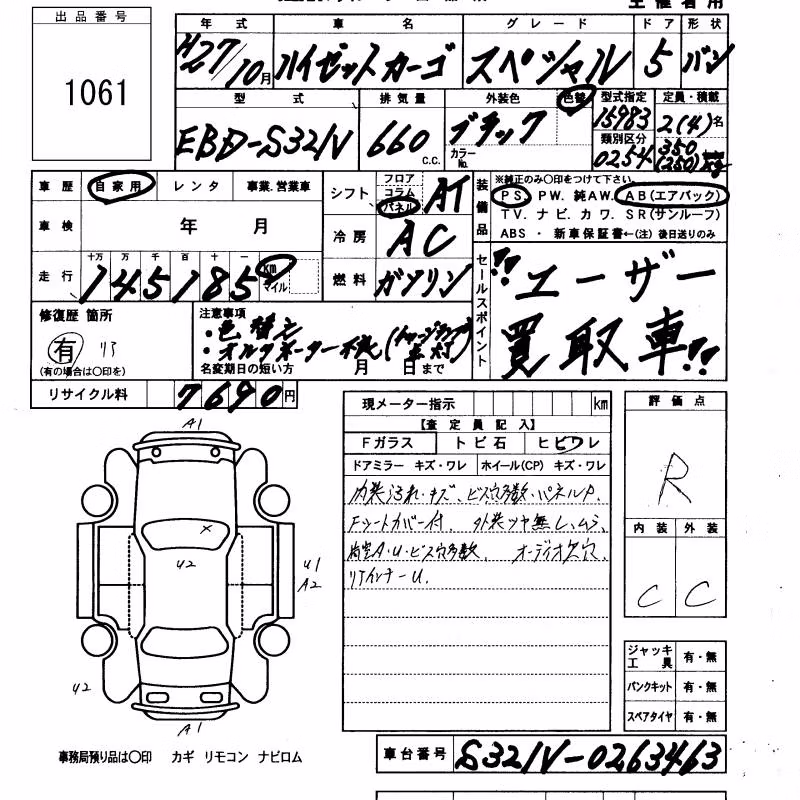 出品番号
1061
年式 車名 グレード ドア 形状
H27/10月 ハイゼットカーゴ スペシャル 5 バン
型式 排気量 外装色 色替 型式指定 定員・積載
EBD-S321V 660 c.c. ブラック カラーNo. 15983 2(4)名
類別区分 0254 350(250)kg
車歴 自家用 レンタ 事業.営業車
シフト フロア コラム パネル AT
装備品
※純正のみ〇印をつけて下さい。
PS. PW. 純AW. AB(エアバック)
TV. ナビ. カワ. SR(サンルーフ)
ABS ・ 新車保証書←(注) 後日送りのみ
車検 年 月
冷房 AC
走行 十万 万 千 百 十 一
145185 km マイル
燃料 ガソリン
セールスポイント
ユーザー
買取車!!
修復歴 箇所
有 リア
(有の場合は〇印を)
注意事項
・色替え
・オルタネーター不良(チャージランプ点灯)
名変期日の短い方 月 日まで
リサイクル料 7690円
現メーター指示 km
【査定員記入】
Fガラス トビ石 ヒビワレ
ドアミラー キズ・ワレ ホイール(CP) キズ・ワレ
内装汚れ・キズ、ビス穴多数・パネルP.
Fシートカバー付. 外装ツヤ無し、ムラ
A・U・ビス穴多数、オーディオ欠穴.
リアインナーU.
評価点
R
内装 外装
C C
A1
X
U2
U1
A2
U2
A1
ジャッキ工具 有・無
パンクキット 有・無
スペアタイヤ 有・無
事務局預り品は〇印 カギ リモコン ナビロム
車台番号 S321V-0263463